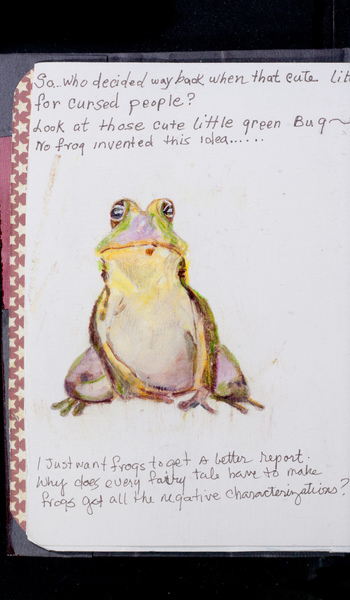 So.. who decided way back when that cute
for cursed people?
Look at those cute little green Bug
No frog invented this idea......
I just want frogs to get a better report.
Why does every fairy tale have to make
frogs get all the negative characterizations?